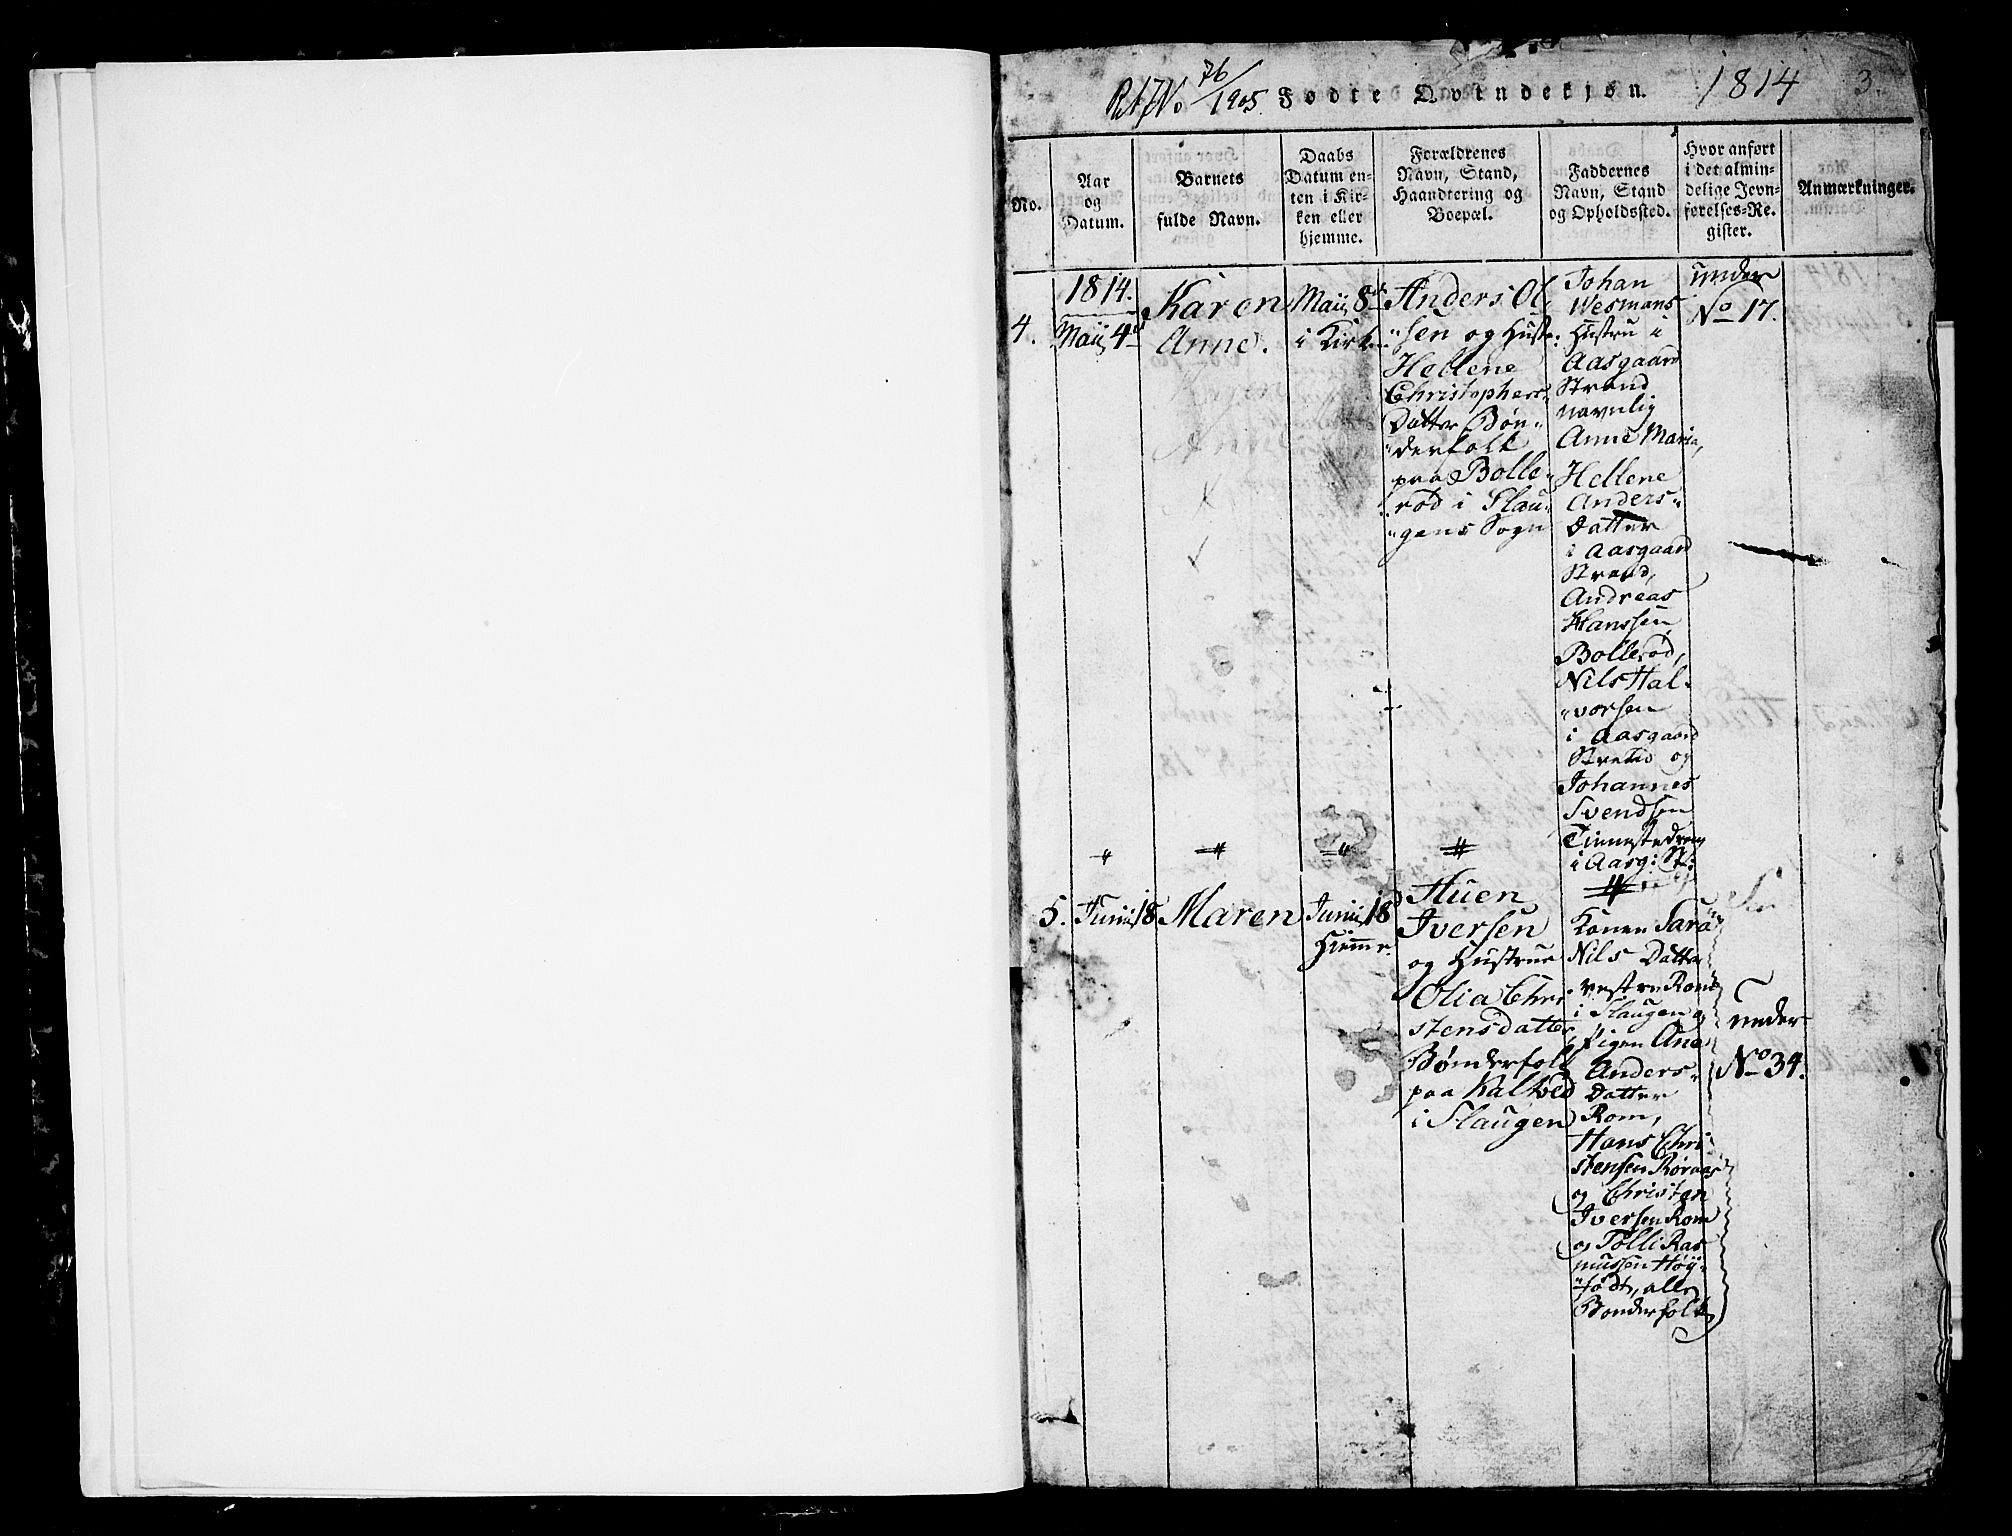 76/1905. Fødte Qvindekjøn. 1814 3.
No.
Aar
og
Datum.
Barnets
fulde Navn.
Daabs
Datum en-
ten i Kir-
ken eller
hjemme.
Forældrenes
Navn, Stand,
Haandtering og
Boepæl.
Faddernes
Navn, Stand
og Opholdssted.
Hvor anført
i det almin-
delige Jevn-
førelses-Re-
gister.
Anmærkninger.
4.
1814.
Maii 4de
Karen
Anne.
Maii 8de
i Kirken
Anders Ol
"sen og Hust:
Hellene
Christophers
Datter Bøn"
"derfolk
paa Bolle"
"rød i Slau"
"gens Sogn
Johan
Wesmans
Hustru i
Aasgaard
Strand
navnlig
Anne Maria,
Hellene
Anders"
Datter
i Aasgaard
Strand,
Andreas
Hanssen
Bollerød,
Nils Hal"
"vorsen
i Aasgaard
Strand og
Johannes
Svendsen
i Aasg: St:
under
No 17.
5.
Junii 18
Maren
Junii 18
Hiemme.
Iversen
og Hustrue
Olia Chri
stensdatter,
Bønderfolk
paa Kalved
i Slaugen
Konen Sara
Nils Datter
vestre Rom
i Slaugen og
Pigen Ane
Anders"
Datter
Rom,
Hans Chri
stensen Roraas
og Christen
Iversen Rom
og Tolli Ras
mussen Høy"
"tødt, alle
Bonderfolk
under
No 34.